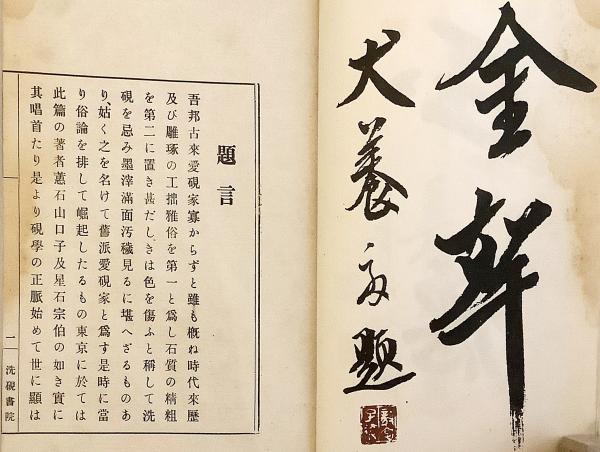 金
犬養毅題
題言
吾邦古來愛硯家寡からずと雖も槪ね時代來歷
及び雕琢の工拙雅俗を第一と爲し石質の精粗
を第二に置き甚だしきは色を傷ふと稱して洗
硯を忌み墨滓滿面汚穢見るに堪へざるものあ
り、姑く之を名けて舊派愛硯家と爲す是時に當
り俗論を排して崛起したるもの東京に於ては
此篇の著者蕙石山口子及星石宗伯の如き實に
其唱首たり是より硯學の正脈始めて世に顯は
二 洗硯書院